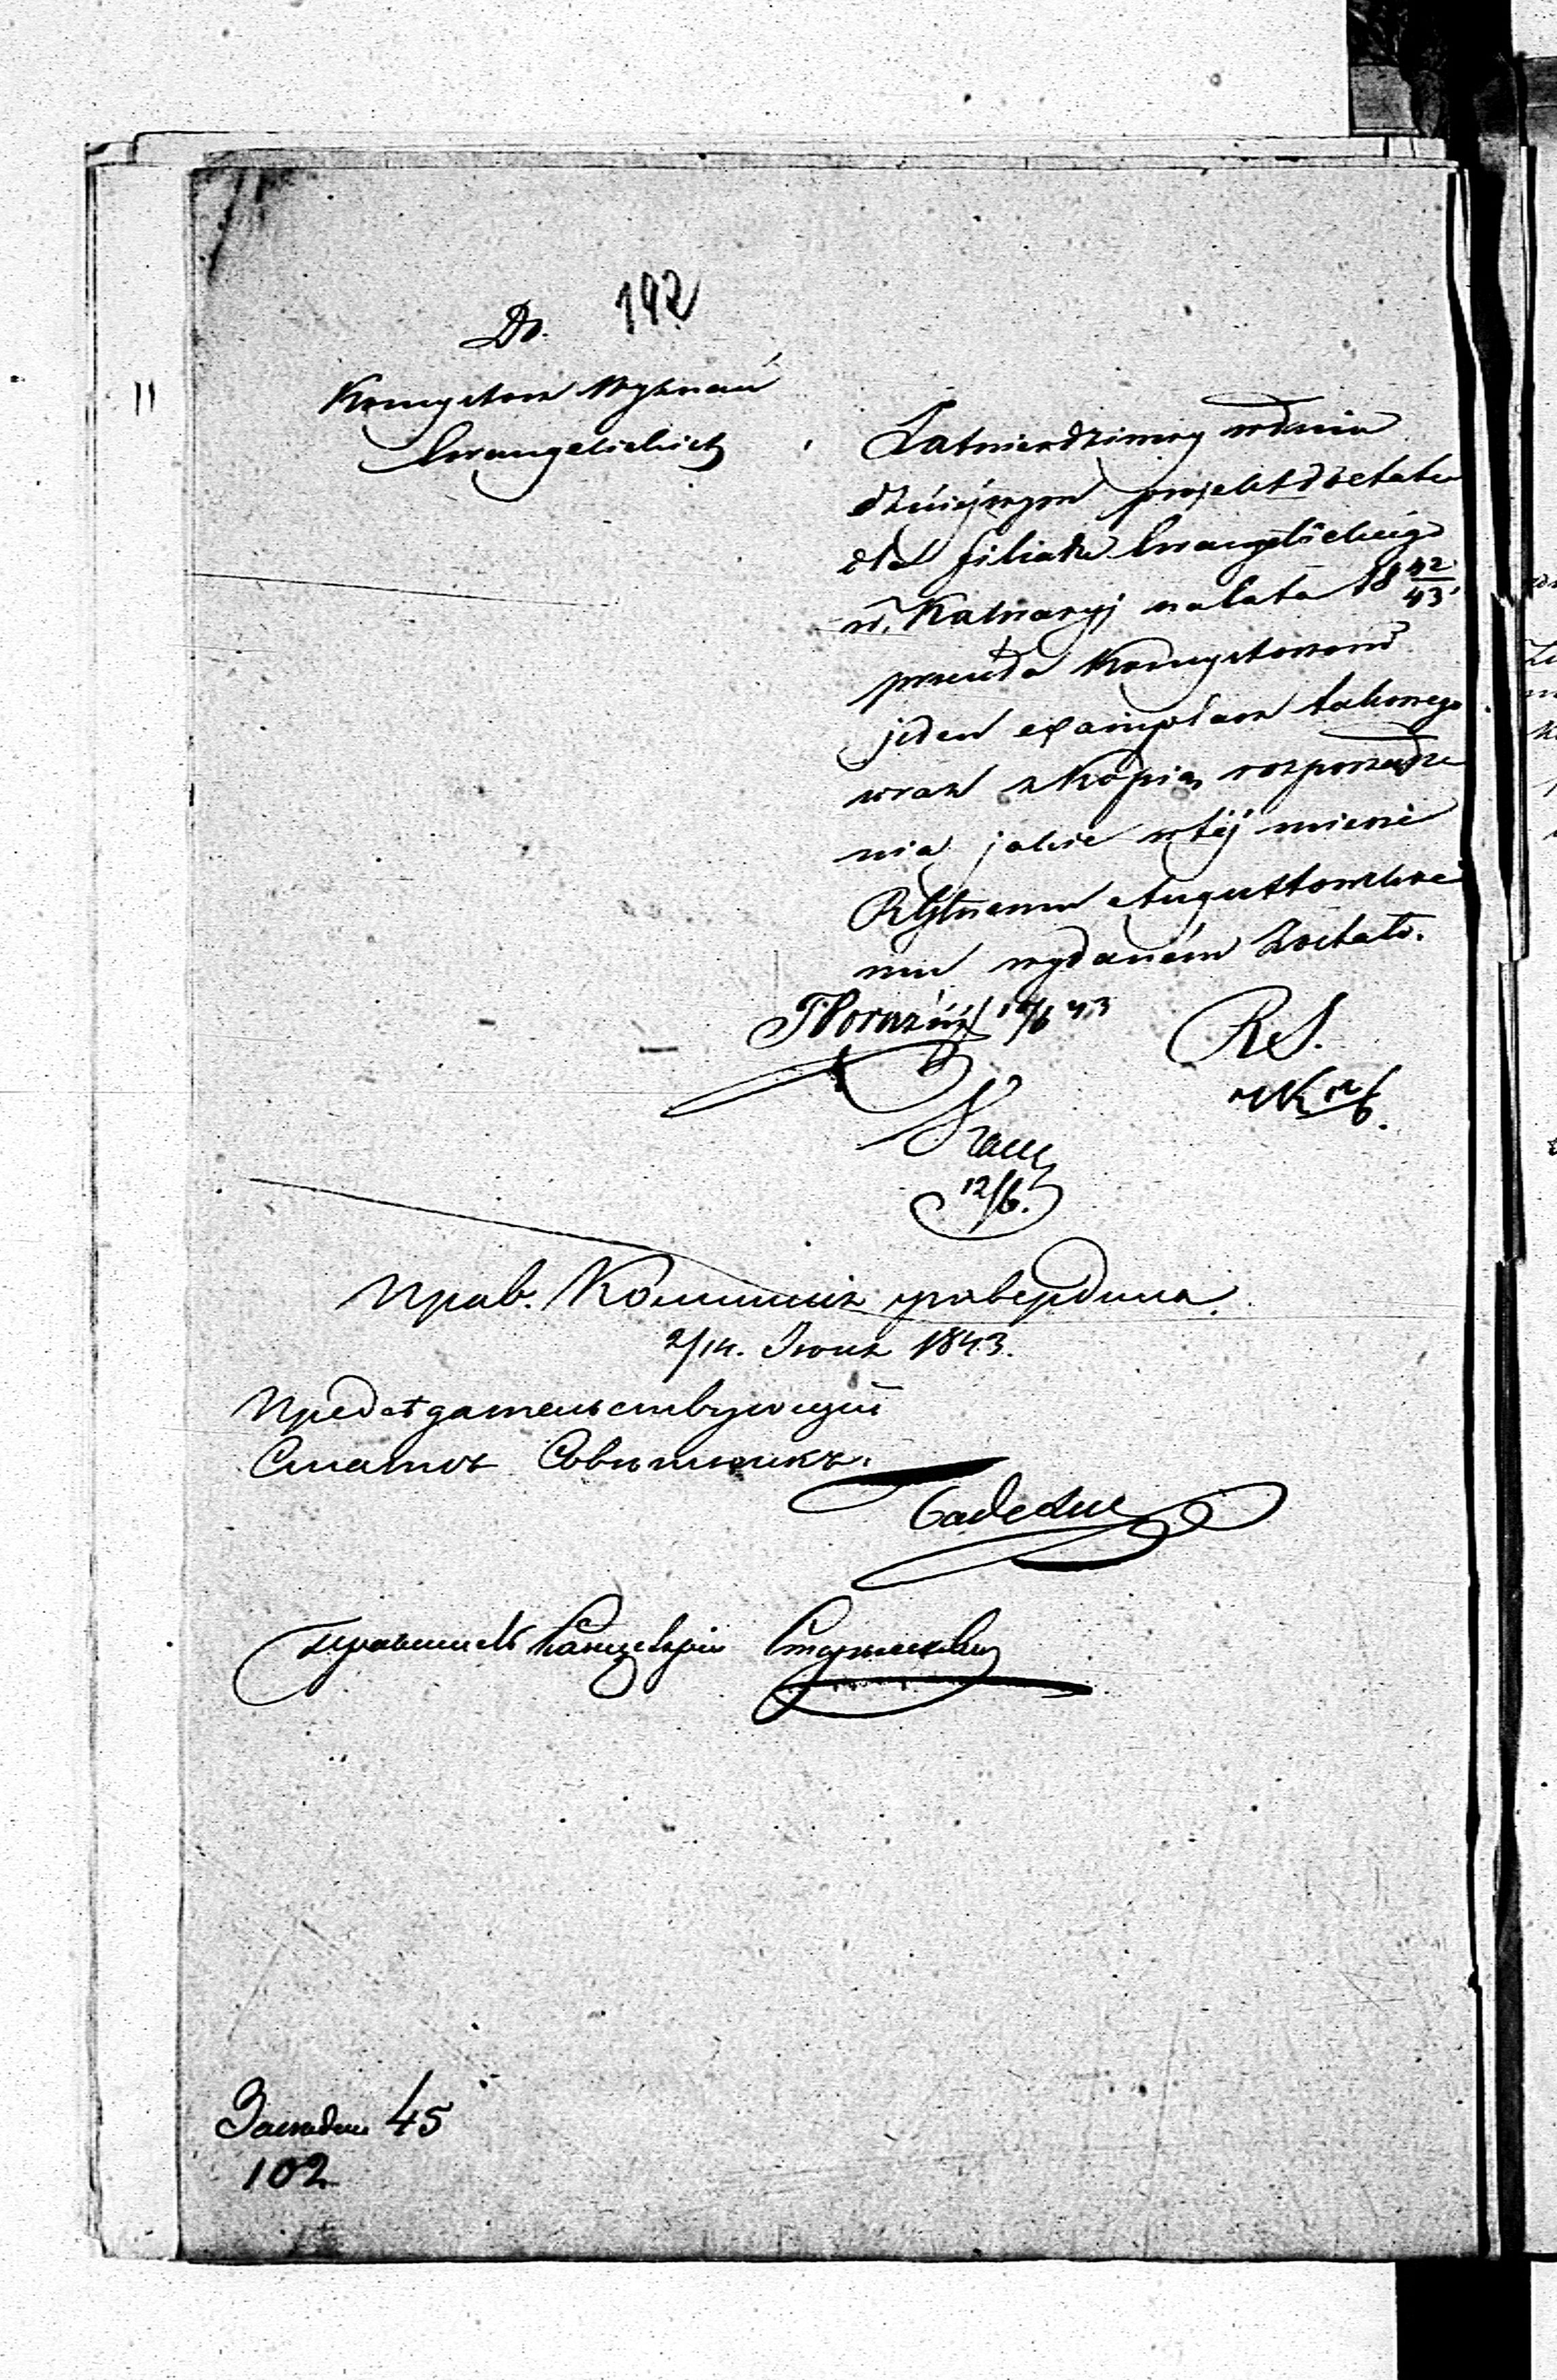 192
Do
Konsystorz Wyznań
Ewangelickich
11
Zatwierdziwszy wdniu
dzisiejszym projekt do etatu
dla filiału Ewangelickiego
w Kalwaryj na lata 18 42/43
przesyła Konsystorzowi
jeden exemplarz takowego
wraz z kopią rozporządze
nia jakie wtéj mierze
RGbnemu Augustowskie
mu wydaném zostało.
12/6 43
RS.
12/6.
12/6.
Прав. Коммисія утвердила
2/14. Іюня 1843.
Предсѣдательствующій
Статск Совѣтникъ.
Правитель Канцеляріи
45
102